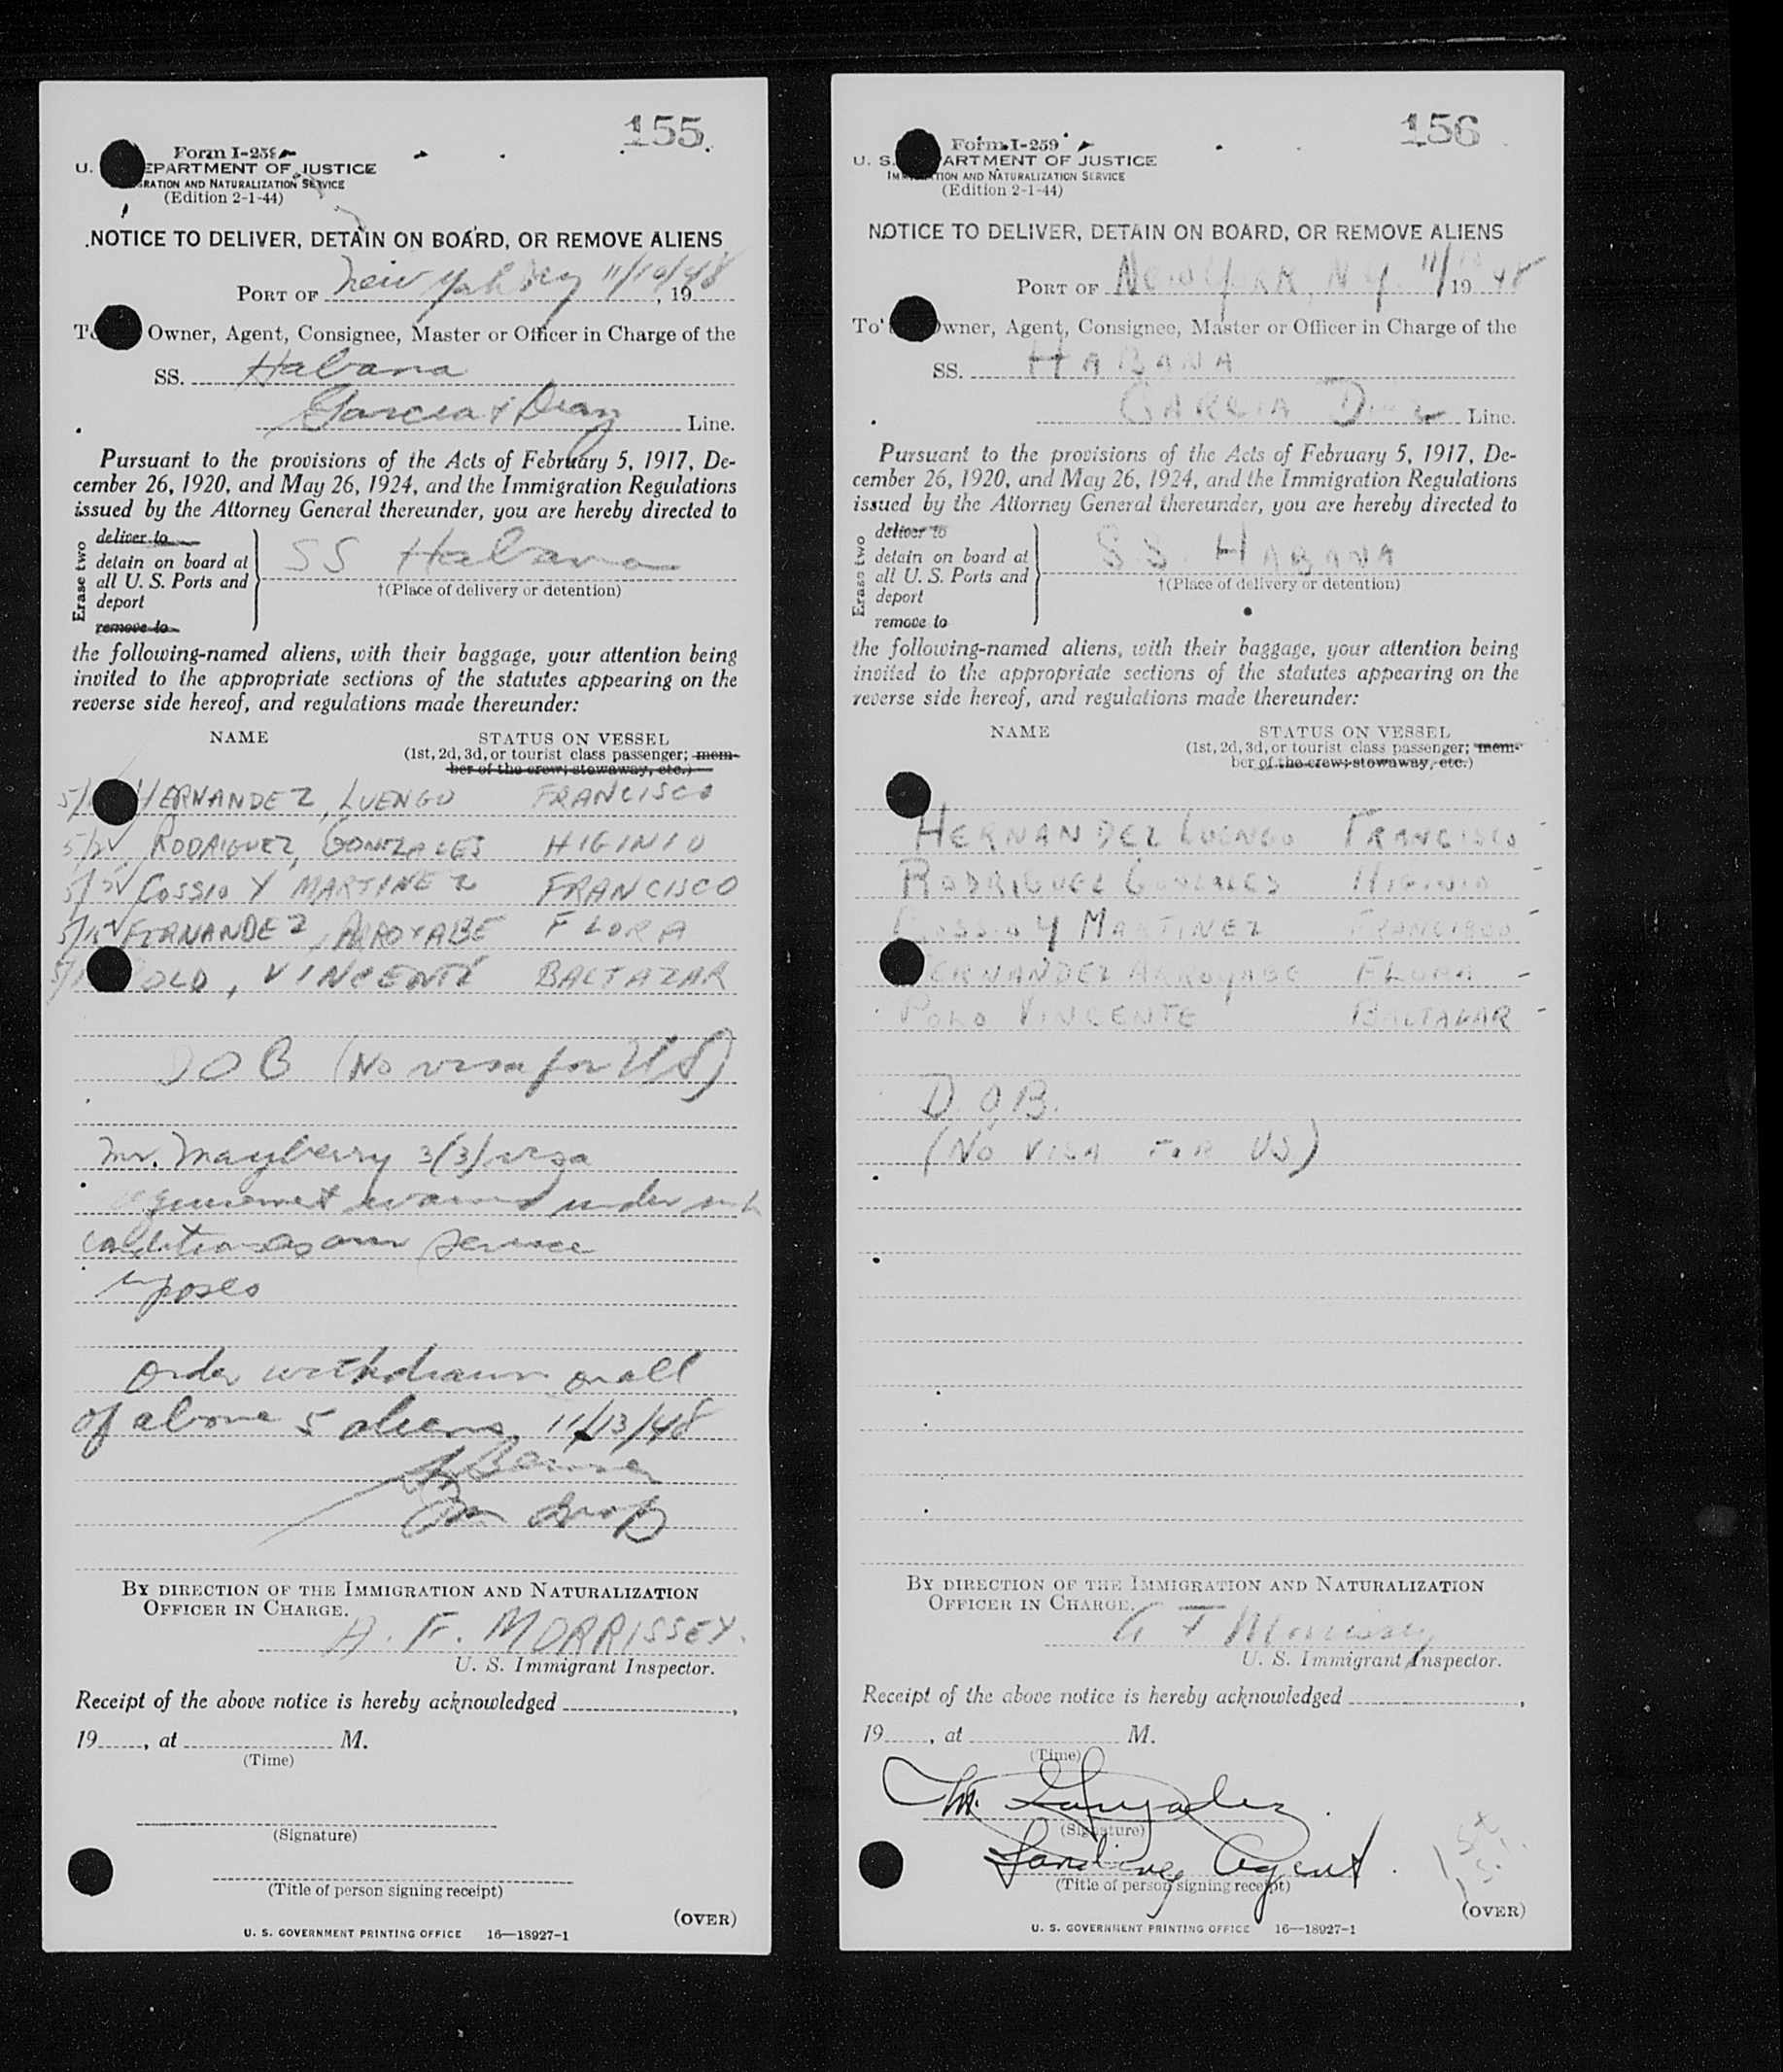 155
Form I-259
U. EPARTMENT OF JUSTICE
RATION AND NATURALIZATION SERVICE
(Edition 2-1-44)
NOTICE TO DELIVER, DETAIN ON BOARD, OR REMOVE ALIENS
PORT OF New York Ny 11/10/48, 19
To Owner, Agent, Consignee, Master or Officer in Charge of the
SS. Habana
Garcia & Diaz Line.
Pursuant to the provisions of the Acts of February 5, 1917, De-
cember 26, 1920, and May 26, 1924, and the Immigration Regulations
issued by the Attorney General thereunder, you are hereby directed to
Erase two
deliver to
detain on board at
all U. S. Ports and
deport
remove to
SS Habana
†(Place of delivery or detention)
the following-named aliens, with their baggage, your attention being
invited to the appropriate sections of the statutes appearing on the
reverse side hereof, and regulations made thereunder:
NAME STATUS ON VESSEL
(1st, 2d, 3d, or tourist class passenger; mem-
ber of the crew; stowaway, etc.)
HERNANDEZ, LUENGO FRANCISCO
RODRIGUEZ, GONZALES HIGINIO
COSSIO Y MARTINEZ FRANCISCO
FERNANDEZ, ARROYABE FLORA
OLO, VINCENTE BALTAZAR
DOB (No visa for US)
Mr. Mayberry 3/3/ visa
waived under
conditions as our service
imposes
Order withdrawn on all
of above 5 aliens 11/13/48
BY DIRECTION OF THE IMMIGRATION AND NATURALIZATION
OFFICER IN CHARGE.
A. F. MORRISSEY.
U. S. Immigrant Inspector.
Receipt of the above notice is hereby acknowledged ,
19 , at M.
(Time)
(Signature)
(Title of person signing receipt)
(OVER)
U. S. GOVERNMENT PRINTING OFFICE 16—18927-1
156
Form I-259
U. S. ARTMENT OF JUSTICE
IM TION AND NATURALIZATION SERVICE
(Edition 2-1-44)
NOTICE TO DELIVER, DETAIN ON BOARD, OR REMOVE ALIENS
PORT OF New York, N.Y. 11/ 19 48
To Owner, Agent, Consignee, Master or Officer in Charge of the
SS. HABANA
GARCIA DIAZ Line.
Pursuant to the provisions of the Acts of February 5, 1917, De-
cember 26, 1920, and May 26, 1924, and the Immigration Regulations
issued by the Attorney General thereunder, you are hereby directed to
Erase two
deliver to
detain on board at
all U. S. Ports and
deport
remove to
SS. HABANA
†(Place of delivery or detention)
the following-named aliens, with their baggage, your attention being
invited to the appropriate sections of the statutes appearing on the
reverse side hereof, and regulations made thereunder:
NAME STATUS ON VESSEL
(1st, 2d, 3d, or tourist class passenger; mem-
ber of the crew; stowaway, etc.)
HERNANDEZ LUENGO FRANCISCO
RODRIGUEZ GONZALES HIGINIO
COSSIO Y MARTINEZ FRANCISCO
ERNANDEZ ARROYABE FLORA
POLO VINCENTE BALTAZAR
D.O.B.
(NO VISA FOR US)
BY DIRECTION OF THE IMMIGRATION AND NATURALIZATION
OFFICER IN CHARGE.
A F Morrissey
U. S. Immigrant Inspector.
Receipt of the above notice is hereby acknowledged ,
19 , at M.
(Time)
M. Gonzalez
(Signature)
Landing Agent.
(Title of person signing receipt)
(OVER)
U. S. GOVERNMENT PRINTING OFFICE 16—18927-1